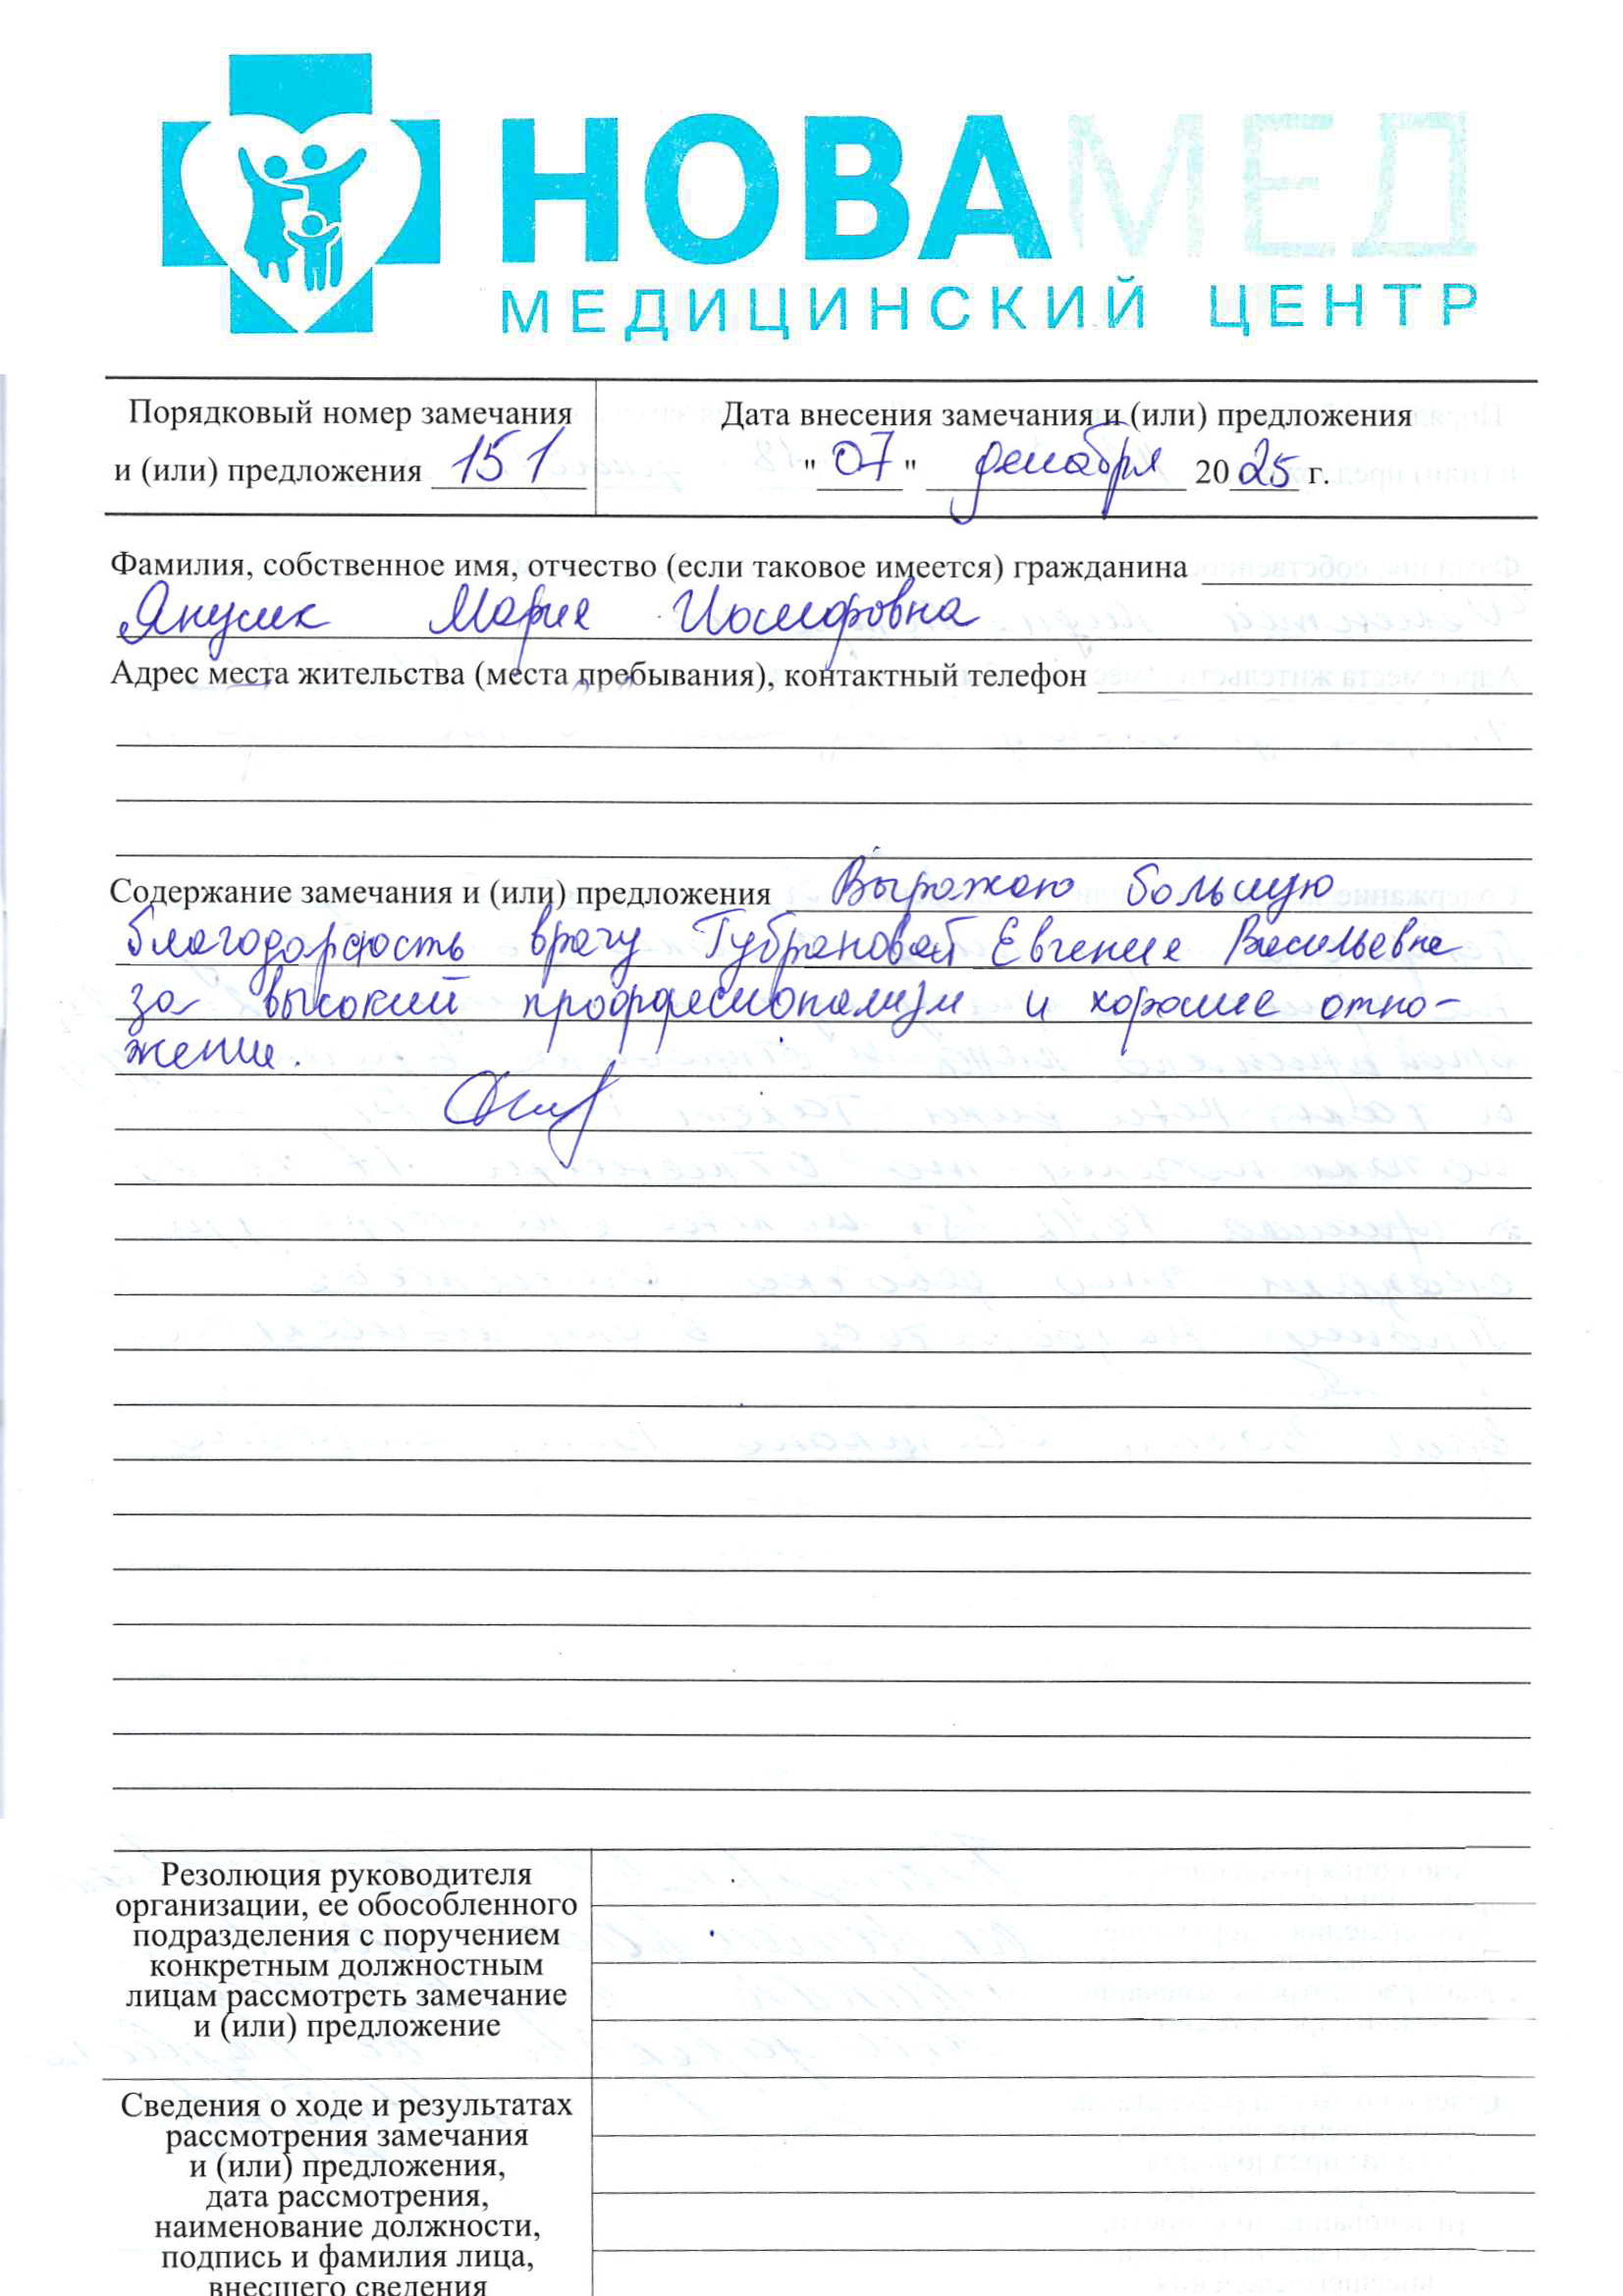 НОВАМЕД
МЕДИЦИНСКИЙ ЦЕНТР
Порядковый номер замечания
и (или) предложения 151
Дата внесения замечания и (или) предложения
" 07 " декабря 2025 г.
Фамилия, собственное имя, отчество (если таковое имеется) гражданина
Янулик Мария Иосифовна
Адрес места жительства (места пребывания), контактный телефон
Содержание замечания и (или) предложения Выражаю большую
благодарность врачу Губрановой Евгение Васильевне
за высокий проффесионализм и хорошие отно-
жение.
Резолюция руководителя
организации, ее обособленного
подразделения с поручением
конкретным должностным
лицам рассмотреть замечание
и (или) предложение
Сведения о ходе и результатах
рассмотрения замечания
и (или) предложения,
дата рассмотрения,
наименование должности,
подпись и фамилия лица,
внесшего сведения